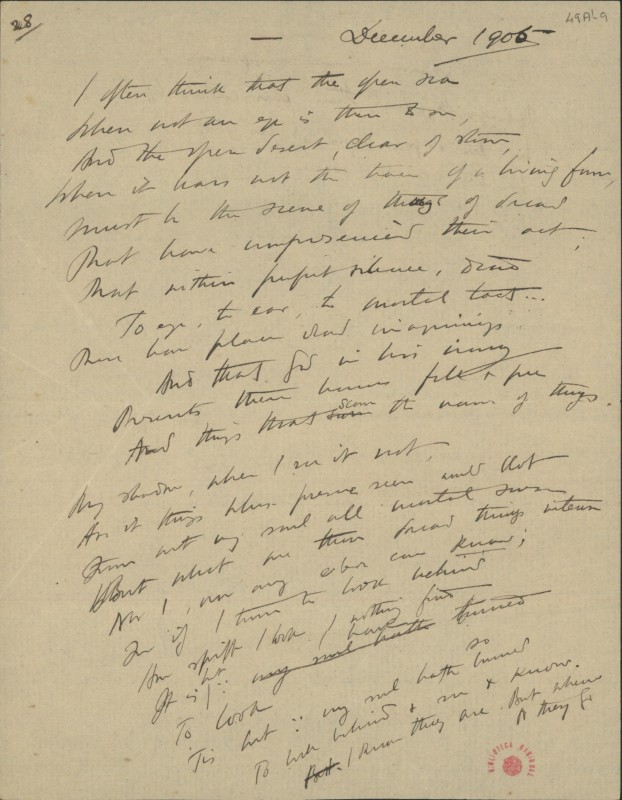 28
49A1-9
— December 1905
I often think that the open sea
When not an eye is there to see,
And the open desert, clear of storm,
When it bears not the trace of a living form,
Must be the scene of things of dread
That have their act;
That within perfect silence, dead
To eye, to ear, to mortal tact...
There have place dread imaginings
And that God in his
Prevents there full & free
And things that scorn the name of things.
My shadow, when I see it not,
Are it things whose presence seen would blot
From out my soul all mortal sense
But what are these dread things intense
Nor I, nor any else can know;
For if I turn to look behind
How swift I look / nothing find
It is but
To look
'Tis but my soul hath so turned
To look behind & see & know.
But I know they are. But where
they go
BIBLIOTECA NACIONAL